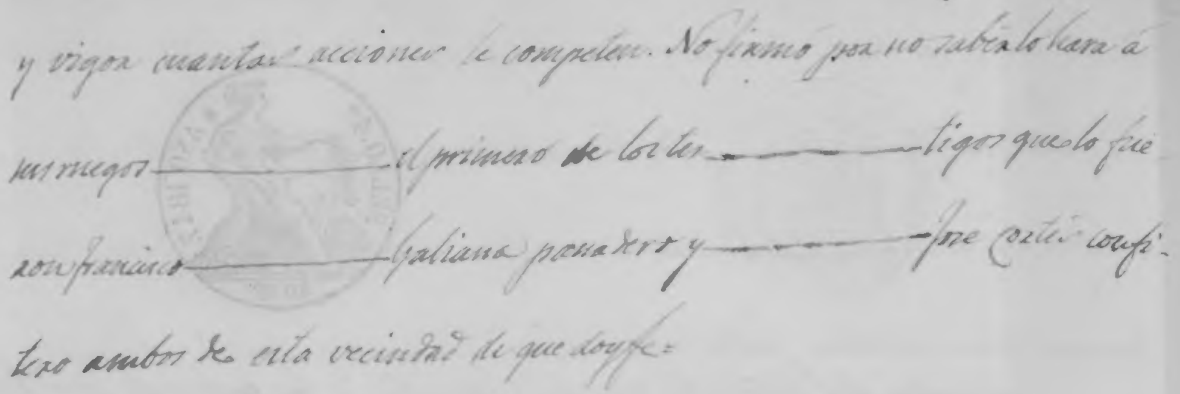 y vigor cuantas acciones le competen. No firmó por no saber lo hara á
sus ruegos el primero de los tes tigos que lo fue
ron Francisco Galiana panadero y Jose Cortés confi-
tero ambos de esta vecindad de que doy fe=